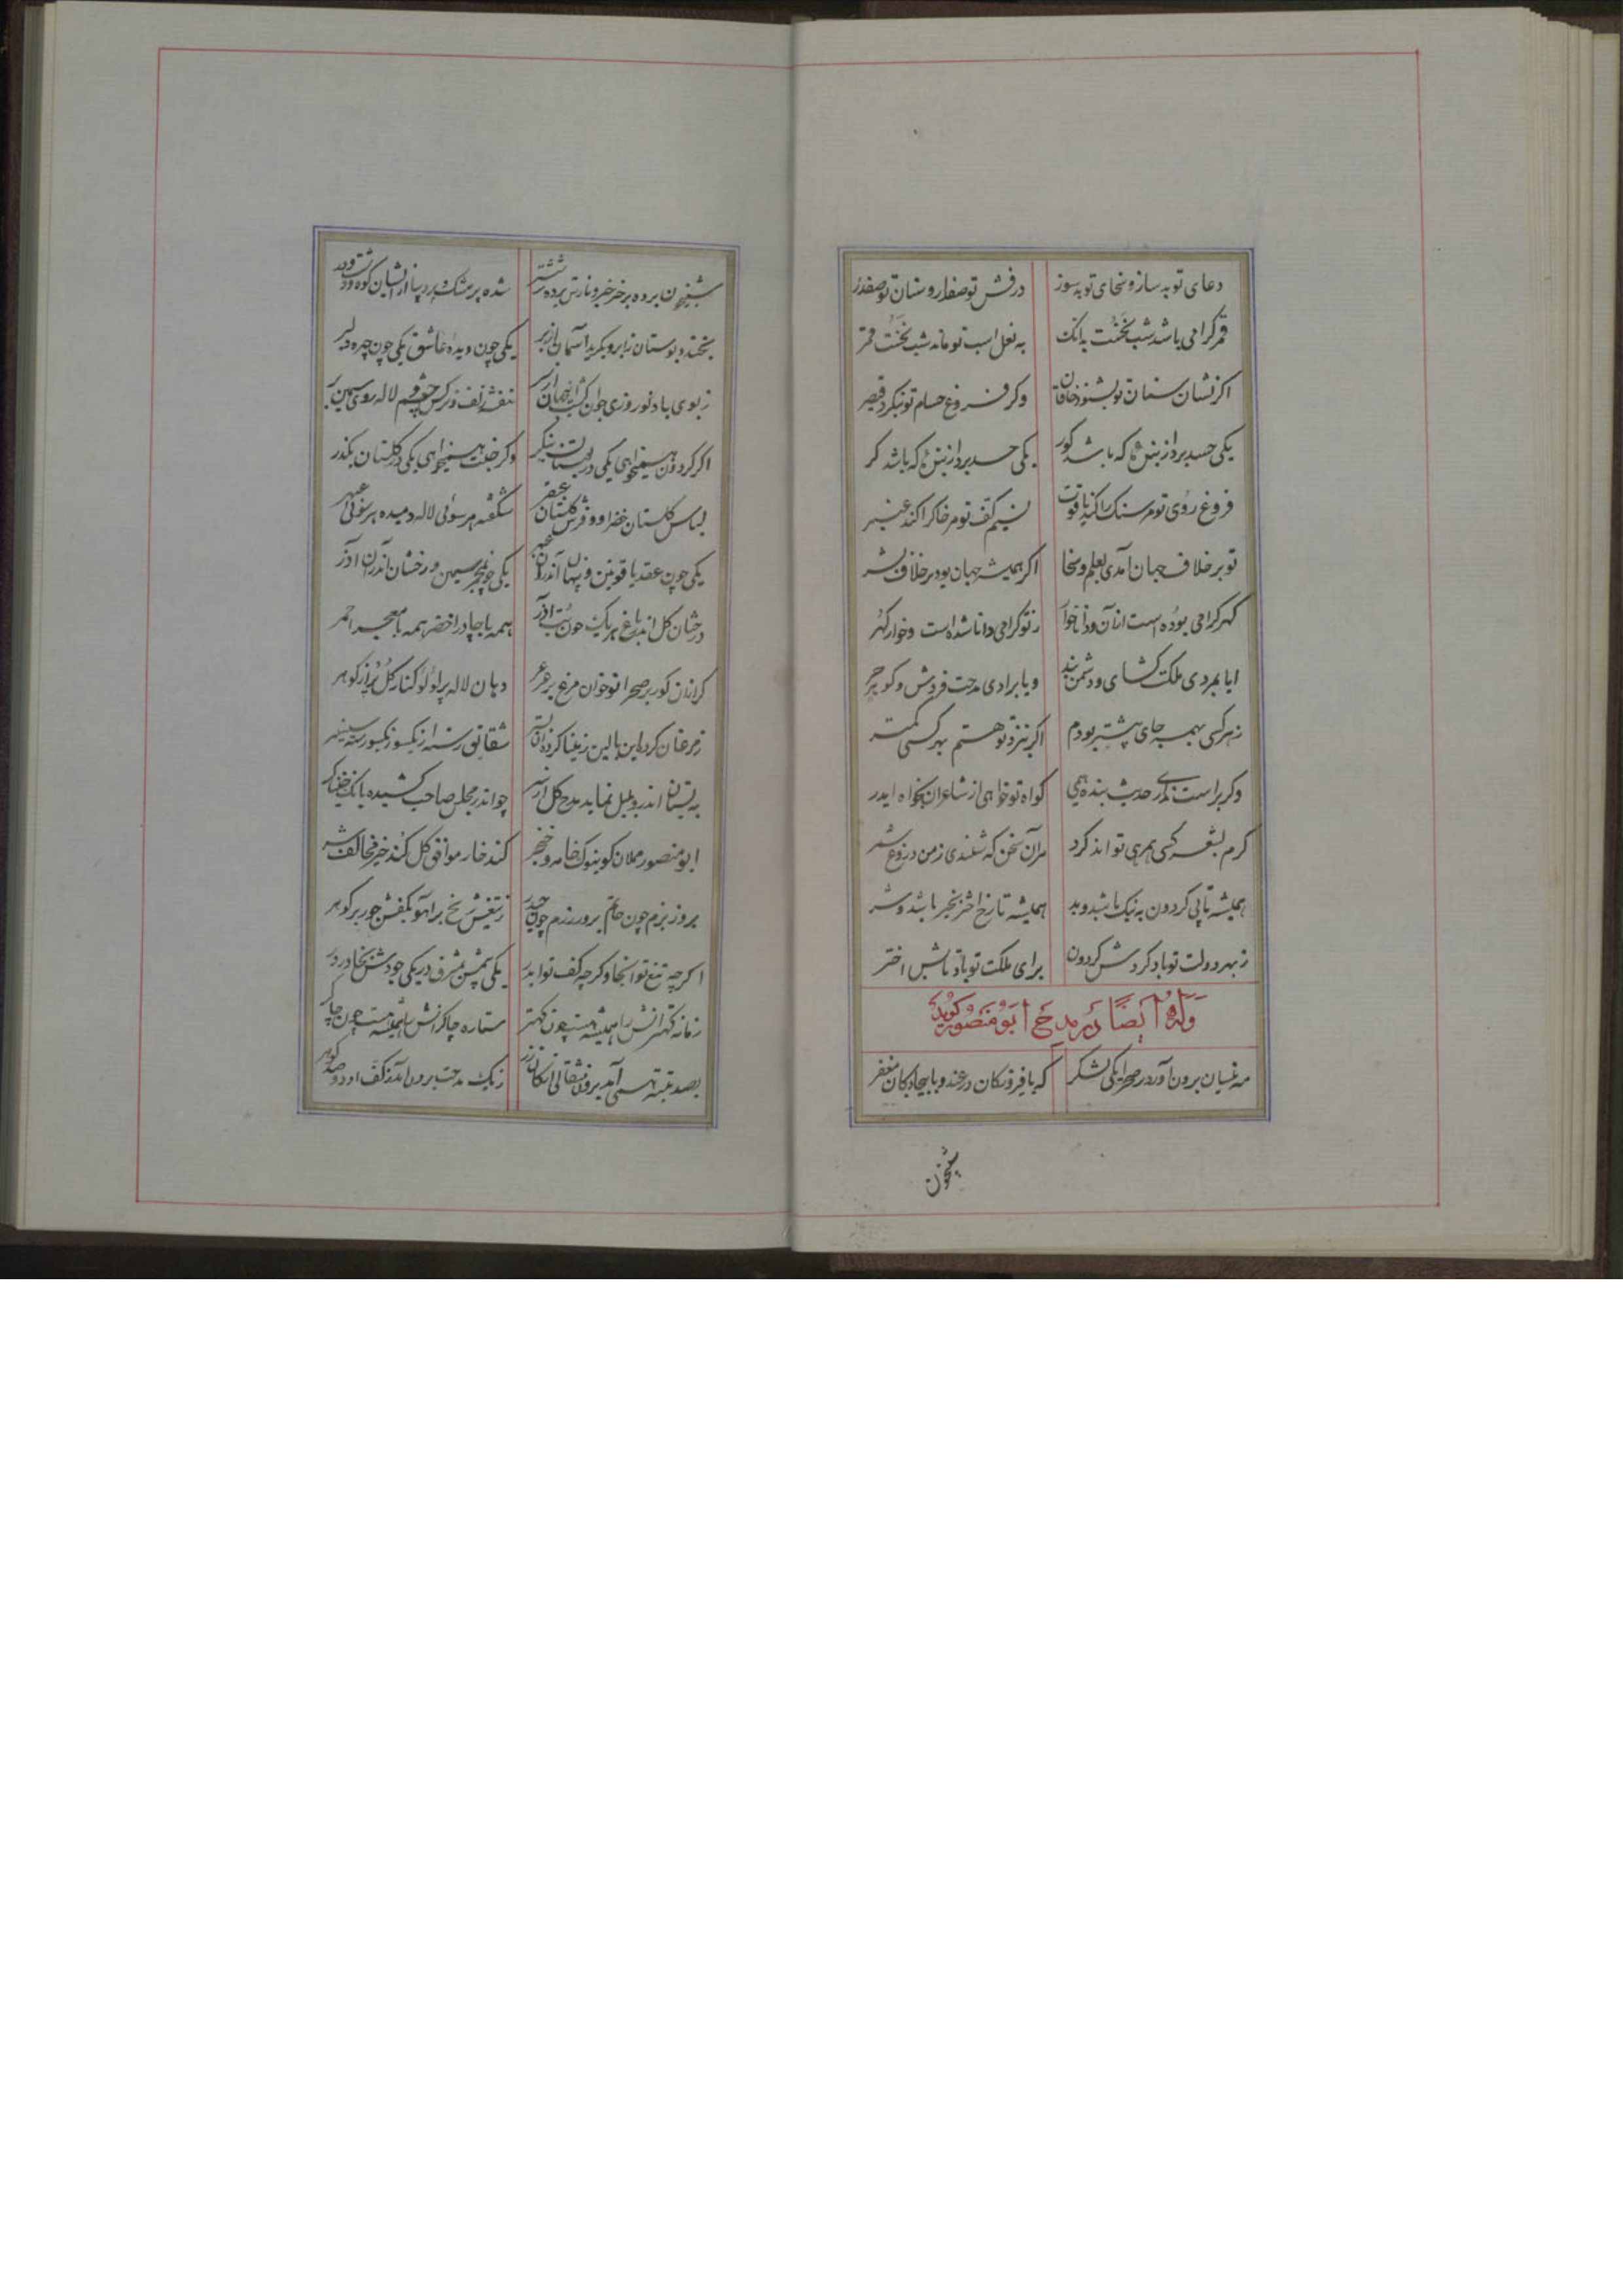 دعای تو به ساز و سخای تو به سوز درفش تو صفدار و سنان تو صفدر
قمر گرامی باشد شب نخست بدانک به نعل اسب تو ماند شب نخست قمر
اگر نشان سنان تو بشنود خاقان وگر فروغ حسام تو بنگرد قیصر
یکی حسد برد از بننده که باشد کور یکی حسد برد از بننده که باشد کر
فروغ روی تو مر سنگ را کند یاقوت نسیم کف تو مر خاک را کند عنبر
تو بر خلاف جهان آمدی بعلم و سخا اگر همیشه جهان بود بر خلاف بشر
گهر گرامی بوده است دانا خوار ز تو گرامی دانا شده است و خوار گهر
ایا بمردی ملکت گشای و دشمن بند و یا برادی مدحت فروش و گوهر خر
ز هر کسی بهمه جای پیشتر بودم اگر بنزد تو هستم ز هر کسی کمتر
وگر براست نداری حدیث بنده همی گواه تو خواهی از شاعران بخواه ایدر
کرم بشعر کسی همری تواند کرد مر آن سخن که شنیدی ز من دروغ شمر
همیشه تا پی گردون به نیک باشد و بد همیشه تا رخ اختر بخیر باشد و شر
ز بهر دولت تو باد گردش گردون برای ملکت تو باد تابش اختر
وله ایضا در مدح ابو منصور گوید
مه نیسان برون آورد در صحرا یکی لشکر که با فیروزگان درعند و با بیجادگان مغفر
شبیخون
شبیخون برده بر خرخیز و نارش برده بر ششتر شده پر مشک و پر دیبا از ایشان کوه و دشت و در
بخندد بوستان زابر و بگرید آسمان از بر یکی چون دیده عاشق یکی چون چهره دلبر
ز بوی باد نوروزی جوان گشت این جهان از سر بنفشه زلف و نرگس چشم و لاله روی و سیمین بر
اگر گردون همی خواهی یکی در بوستان بنگر وگر جنت همی خواهی یکی در گلستان بگذر
لباس گلستان خضرا و فرش گلستان عبقر شکفته هر سوئی لاله دمیده هر سوئی عبهر
یکی چون عقد یاقوتین و پنهان اندران عنبر یکی چون مجمر سیمین و رخشان اندران آذر
درخشان گل اندر باغ هر یک چون بت آزر همه با چادر اخضر همه با معجر احمر
گرازان گور بر صحرا نوخوان مرغ بر عرعر دهان لاله پر لؤلؤ کنار گل پر از گوهر
ز مرغان کرده این بالین ز مینا کرده آن بستر شقایق رسته از یکسو ز یکسو رسته سیسنبر
به بستان اندرو بلبل نماید مدح گل از بر چو اندر مجلس صاحب کشیده بانگ خنیاگر
ابو منصور مملان کو بنوک خامه و خنجر کند خار موافق گل کند خیر مخالف شر
بروز بزم چون حاتم بروز رزم چون حیدر ز تیغش رخ پر آهو ز کفش جور بر گوهر
اگر چه تیغ تو آنجا وگر چه کف تو ایدر یکی پیشش بمشرق در یکی جودش بخاور در
زمانه کهترانش را همیشه هست چون کهتر ستاره چاکرانش را همیشه هست چون چاکر
بصد تیشه همی آید برون مثقالی از کان زر ز یک مدحت برون آید ز کف او دو صد گوهر